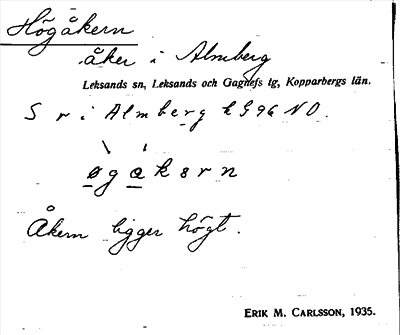 Högåkern
åker i Almberg
Leksands sn, Leksands och Gagnefs tg, Kopparbergs län.
S r i Almberg k G96 NO.
øgakərn
Åkern ligger högt.
ERIK M. CARLSSON, 1935.